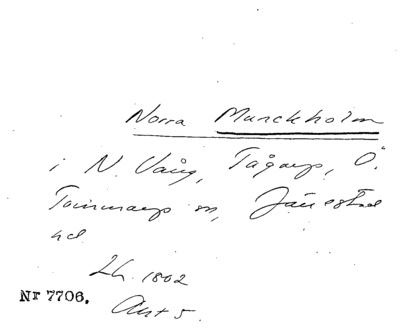 Norra Munckholm
i N. Vång, Tågarp, Ö.
Tommarp sn, Järrestad
hd
Lh. 1802
Nr 7706. Akt 5.